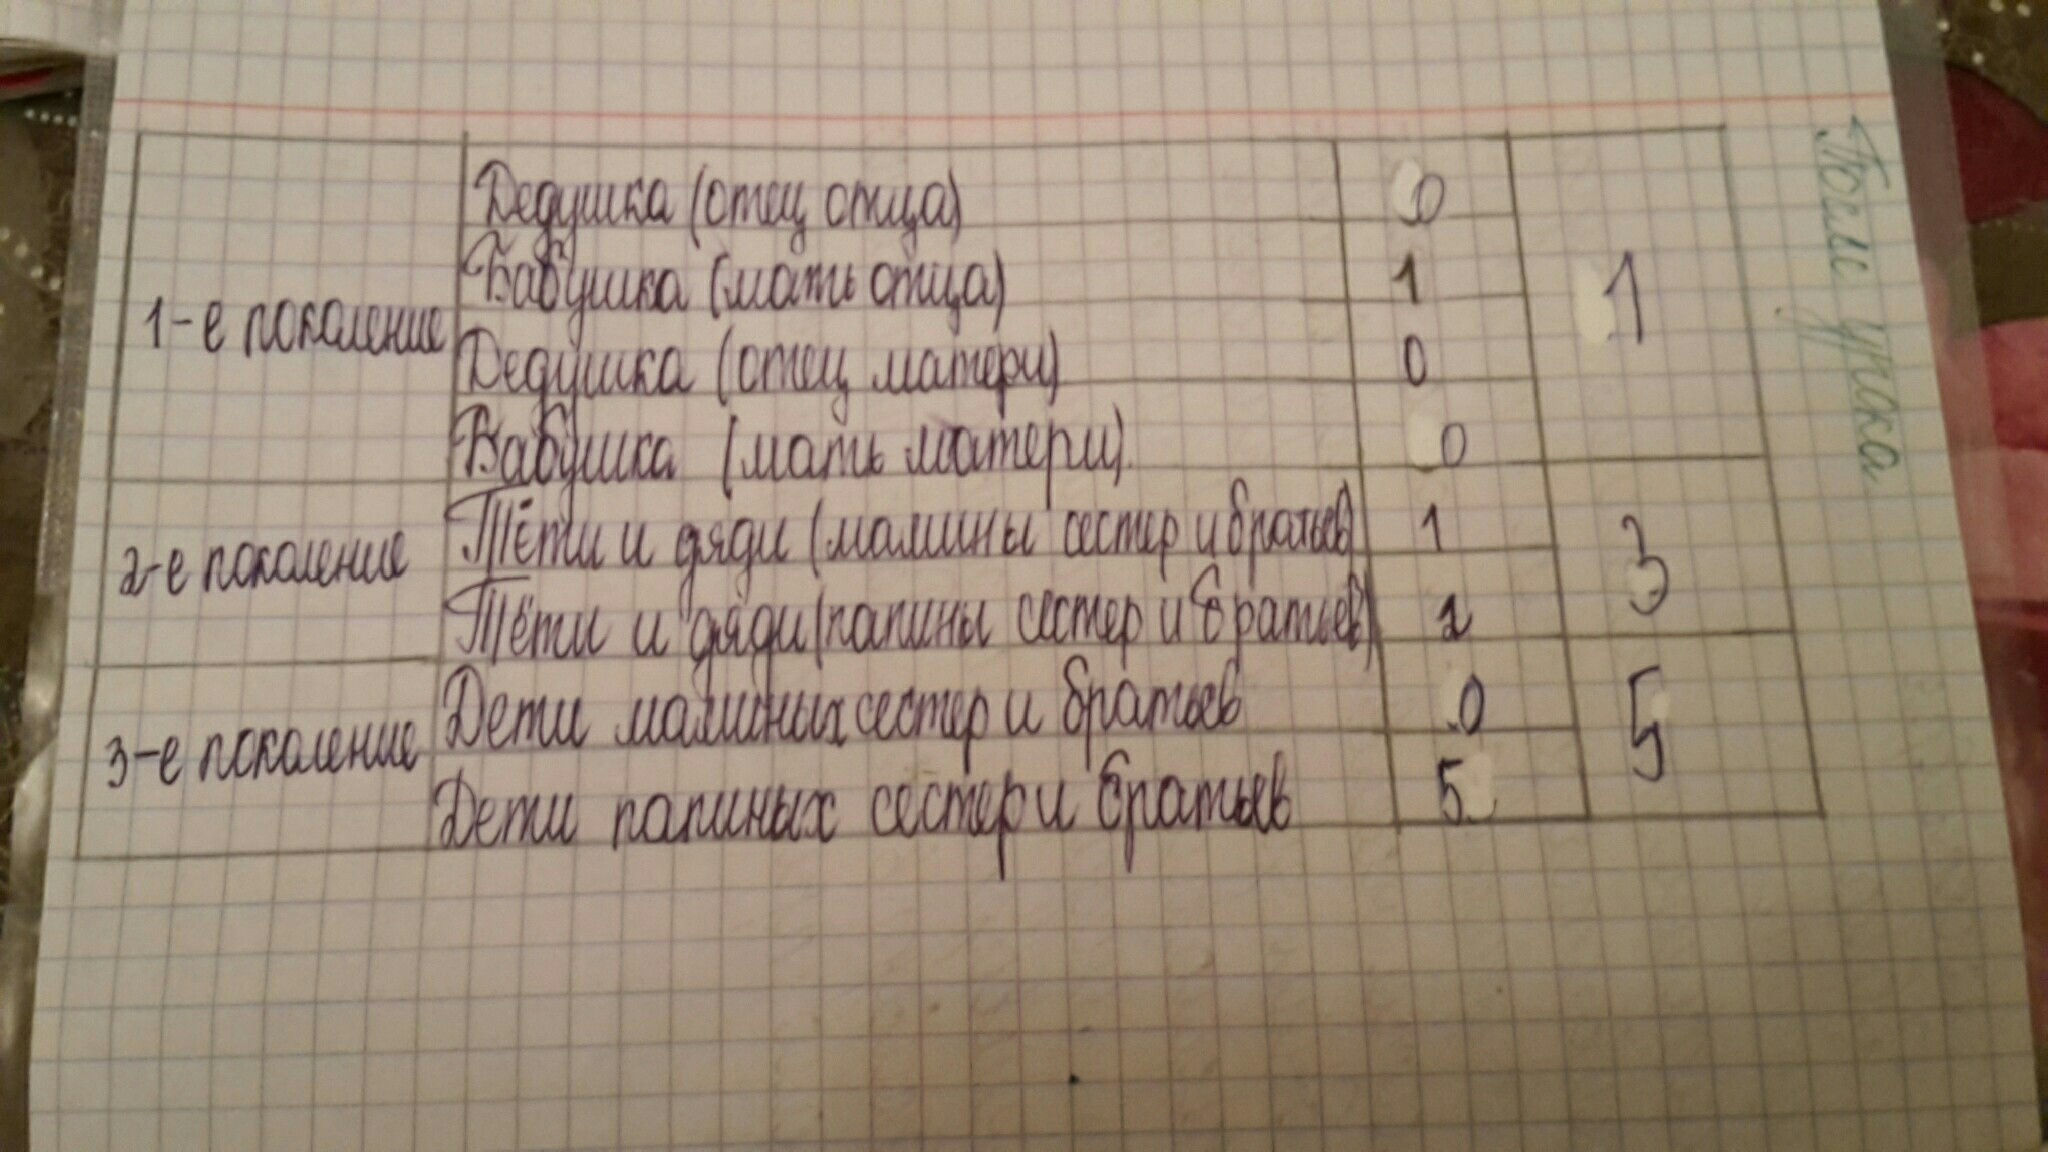 Дедушка (отец отца) 0
Бабушка (мать отца) 1
1-е поколение 1
Дедушка (отец матери) 0
Бабушка (мать матери). 0
Тёти и дяди (мамины сестер и братьев) 1
2-е поколение 3
Тёти и дяди (папины сестер и братьев) 2
Дети маминых сестер и братьев 0
3-е поколение 5
Дети папиных сестер и братьев 5
урока